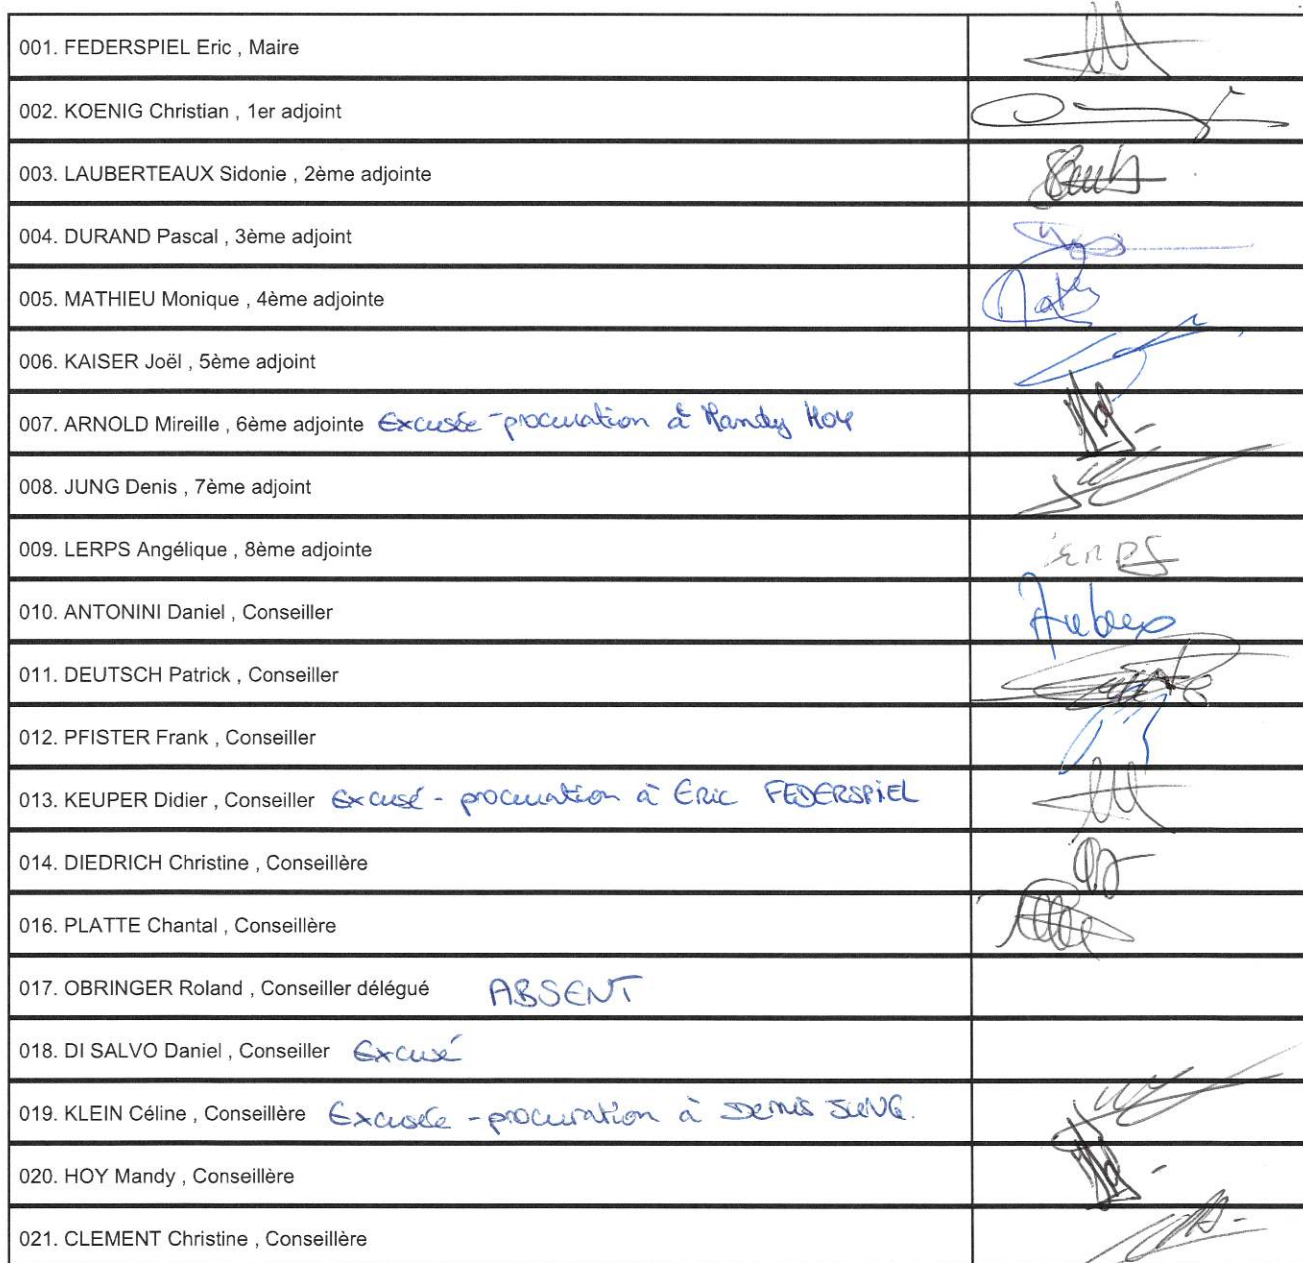 001. FEDERSPIEL Eric , Maire
002. KOENIG Christian , 1er adjoint
003. LAUBERTEAUX Sidonie , 2ème adjointe
004. DURAND Pascal , 3ème adjoint
005. MATHIEU Monique , 4ème adjointe
006. KAISER Joël , 5ème adjoint
007. ARNOLD Mireille , 6ème adjointe Excusée - procuration à Mandy HOY
008. JUNG Denis , 7ème adjoint
009. LERPS Angélique , 8ème adjointe
010. ANTONINI Daniel , Conseiller
011. DEUTSCH Patrick , Conseiller
012. PFISTER Frank , Conseiller
013. KEUPER Didier , Conseiller Excusé - procuration à Eric FEDERSPIEL
014. DIEDRICH Christine , Conseillère
016. PLATTE Chantal , Conseillère
017. OBRINGER Roland , Conseiller délégué ABSENT
018. DI SALVO Daniel , Conseiller Excusé
019. KLEIN Céline , Conseillère Excusée - procuration à Denis JUNG.
020. HOY Mandy , Conseillère
021. CLEMENT Christine , Conseillère